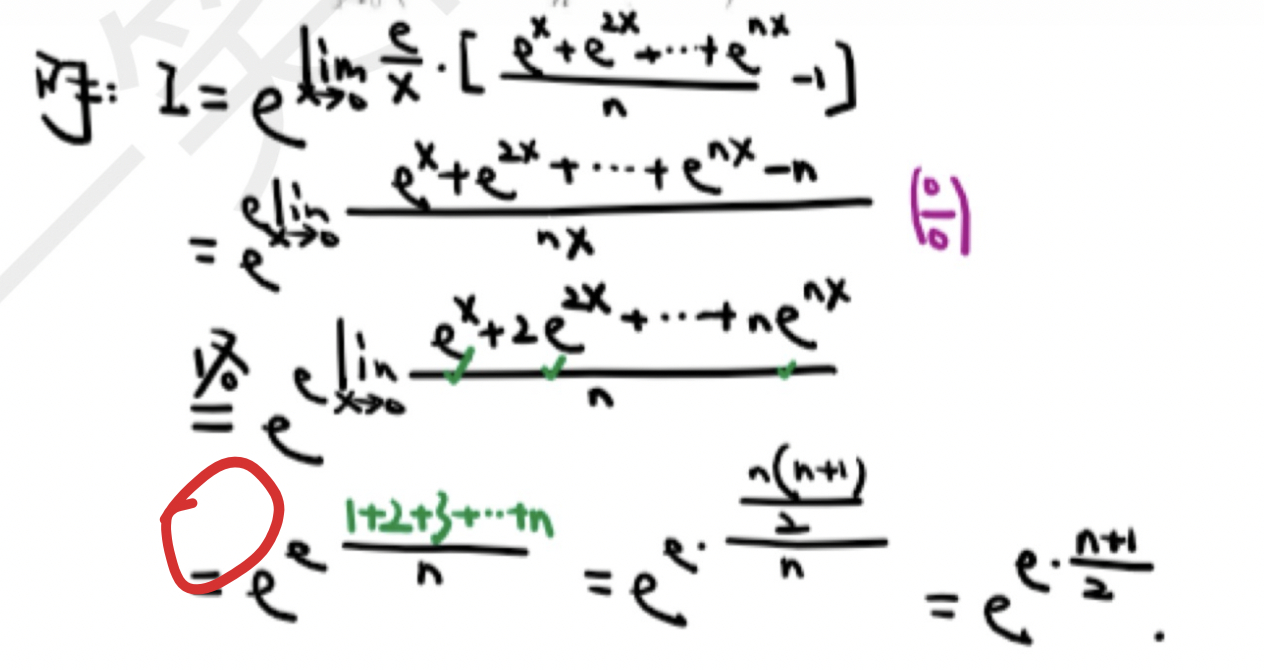 解: I = e^{lim_{x→0} \frac{e}{x} · [\frac{e^x+e^{2x}+···+e^{nx}}{n} -1]}
= e^{e lim_{x→0} \frac{e^x+e^{2x}+···+e^{nx}-n}{nx}} (\frac{0}{0})
= e^{e lim_{x→0} \frac{e^x+2e^{2x}+···+ne^{nx}}{n}}
= e^{e \frac{1+2+3+···+n}{n}} = e^{e·\frac{\frac{n(n+1)}{2}}{n}} = e^{e·\frac{n+1}{2}}.